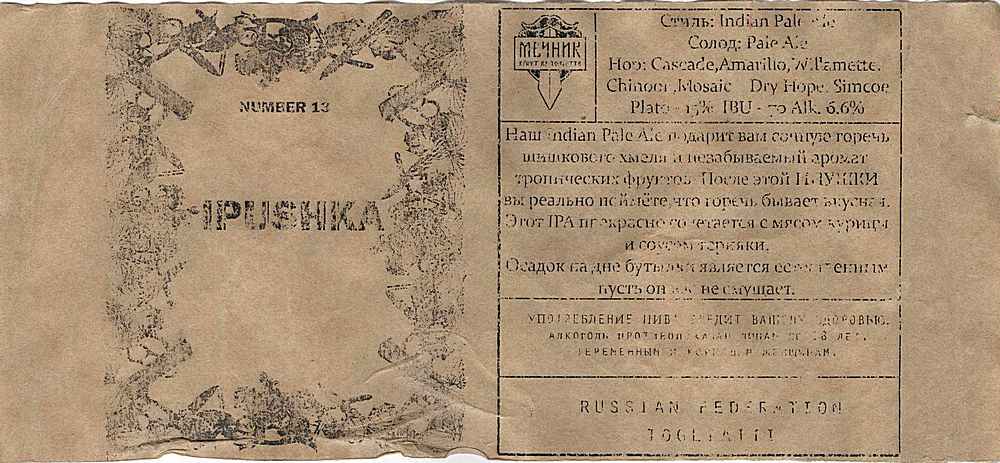 NUMBER 13
IPUSHKA
МЕЧНИК
Стиль: Indian Pale Ale
Солод: Pale Ale
Hop: Cascade, Amarillo, Willamette,
Chinook, Mosaic Dry Hope: Simcoe
Plato - 15% IBU - 70 Alk. 6.6%
Наш Indian Pale Ale подарит вам сочную горечь
шишкового хмеля и незабываемый аромат
тропических фруктов. После этой ИПУШКИ
вы реально поймёте, что горечь бывает вкусная.
Этот IPA прекрасно сочетается с мясом курицы
и соусом терияки.
Осадок на дне бутылки является естественным
пусть он вас не смущает.
УПОТРЕБЛЕНИЕ ПИВА ВРЕДИТ ВАШЕМУ ЗДОРОВЬЮ.
АЛКОГОЛЬ ПРОТИВОПОКАЗАН ЛИЦАМ ДО 18 ЛЕТ,
БЕРЕМЕННЫМ И КОРМЯЩИМ ЖЕНЩИНАМ.
RUSSIAN FEDERATION
TOGLIATTI